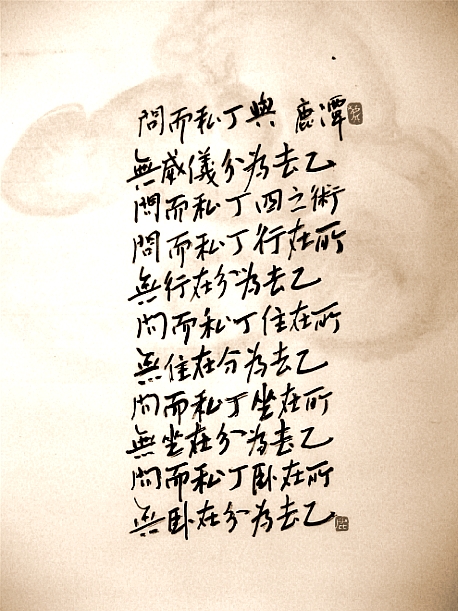 問而私丁與 鹿潭
無威儀分為去乙
問而私丁四之術
問而私丁行在所
無行在分為去乙
問而私丁住在所
無住在分為去乙
問而私丁坐在所
無坐在分為去乙
問而私丁臥在所
無臥在分為去乙